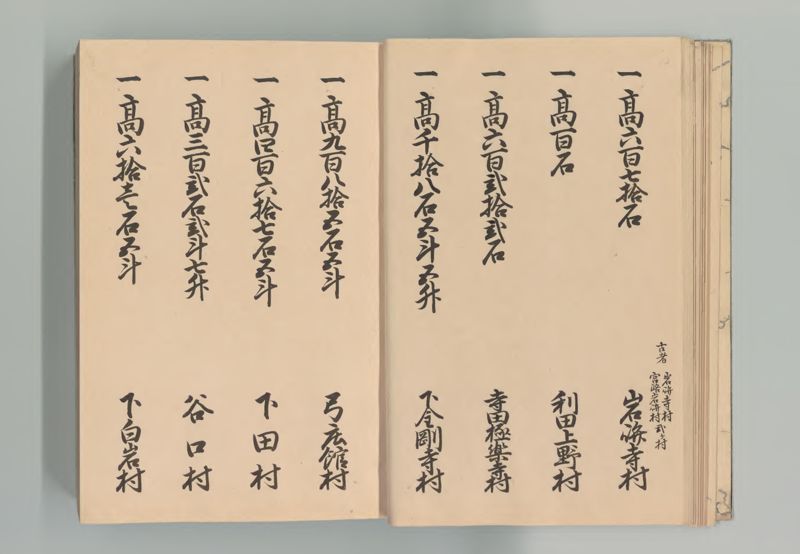 一高六百七拾石
古者 岩峅寺村
宮路岩峅村 弐ヶ村
岩峅寺村
一高百石
利田上野村
一高六百弐拾弐石
寺田極楽寺村
一高千拾八石五斗五升
下金剛寺村
一高九百八拾五石五斗
弓庄舘村
一高四百六拾七石五斗
下田村
一高三百弐石弐斗七升
谷口村
一高六拾壱石五斗
下白岩村